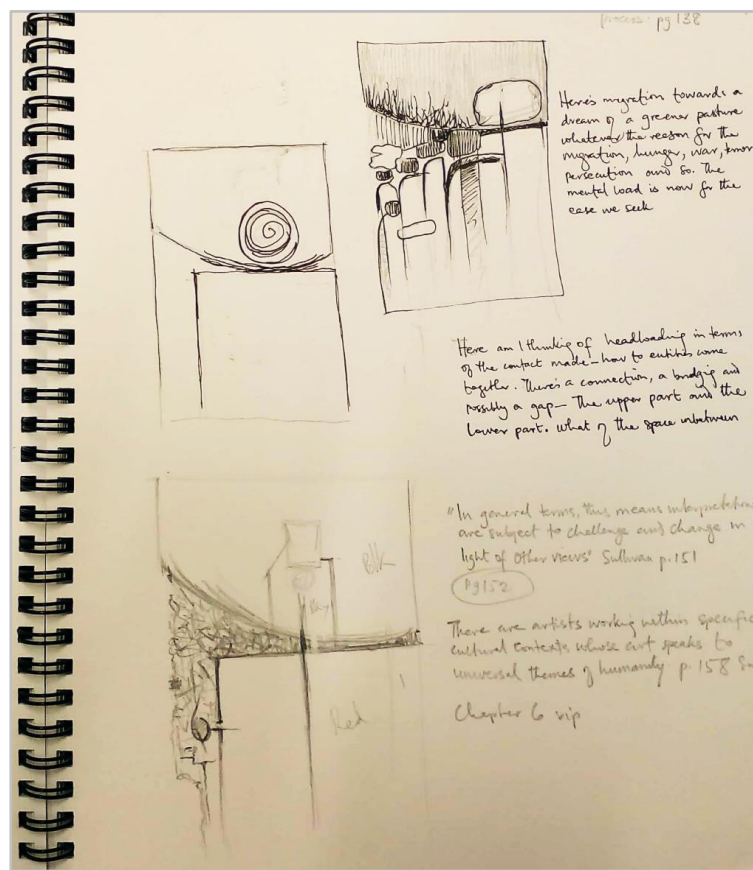 process pg 138
Here's migration towards a
dream of a greener pasture
whatever the reason for the
migration, hunger, war, terror
persecution and so. The
mental load is now for the
ease we seek
Here am I thinking of headloading in terms
of the contact made – how to entities come
together. There's a connection, a bridging and
possibly a gap – The upper part and the
lower part. What of the space inbetween
"In general terms, this means interpretations
are subject to challenge and change in
light of other views" Sullivan p. 151
Pg 152
Blk
There are artists working within specific
cultural contexts whose art speaks to
universal themes of humanity p. 158
Red
Chapter 6 vip